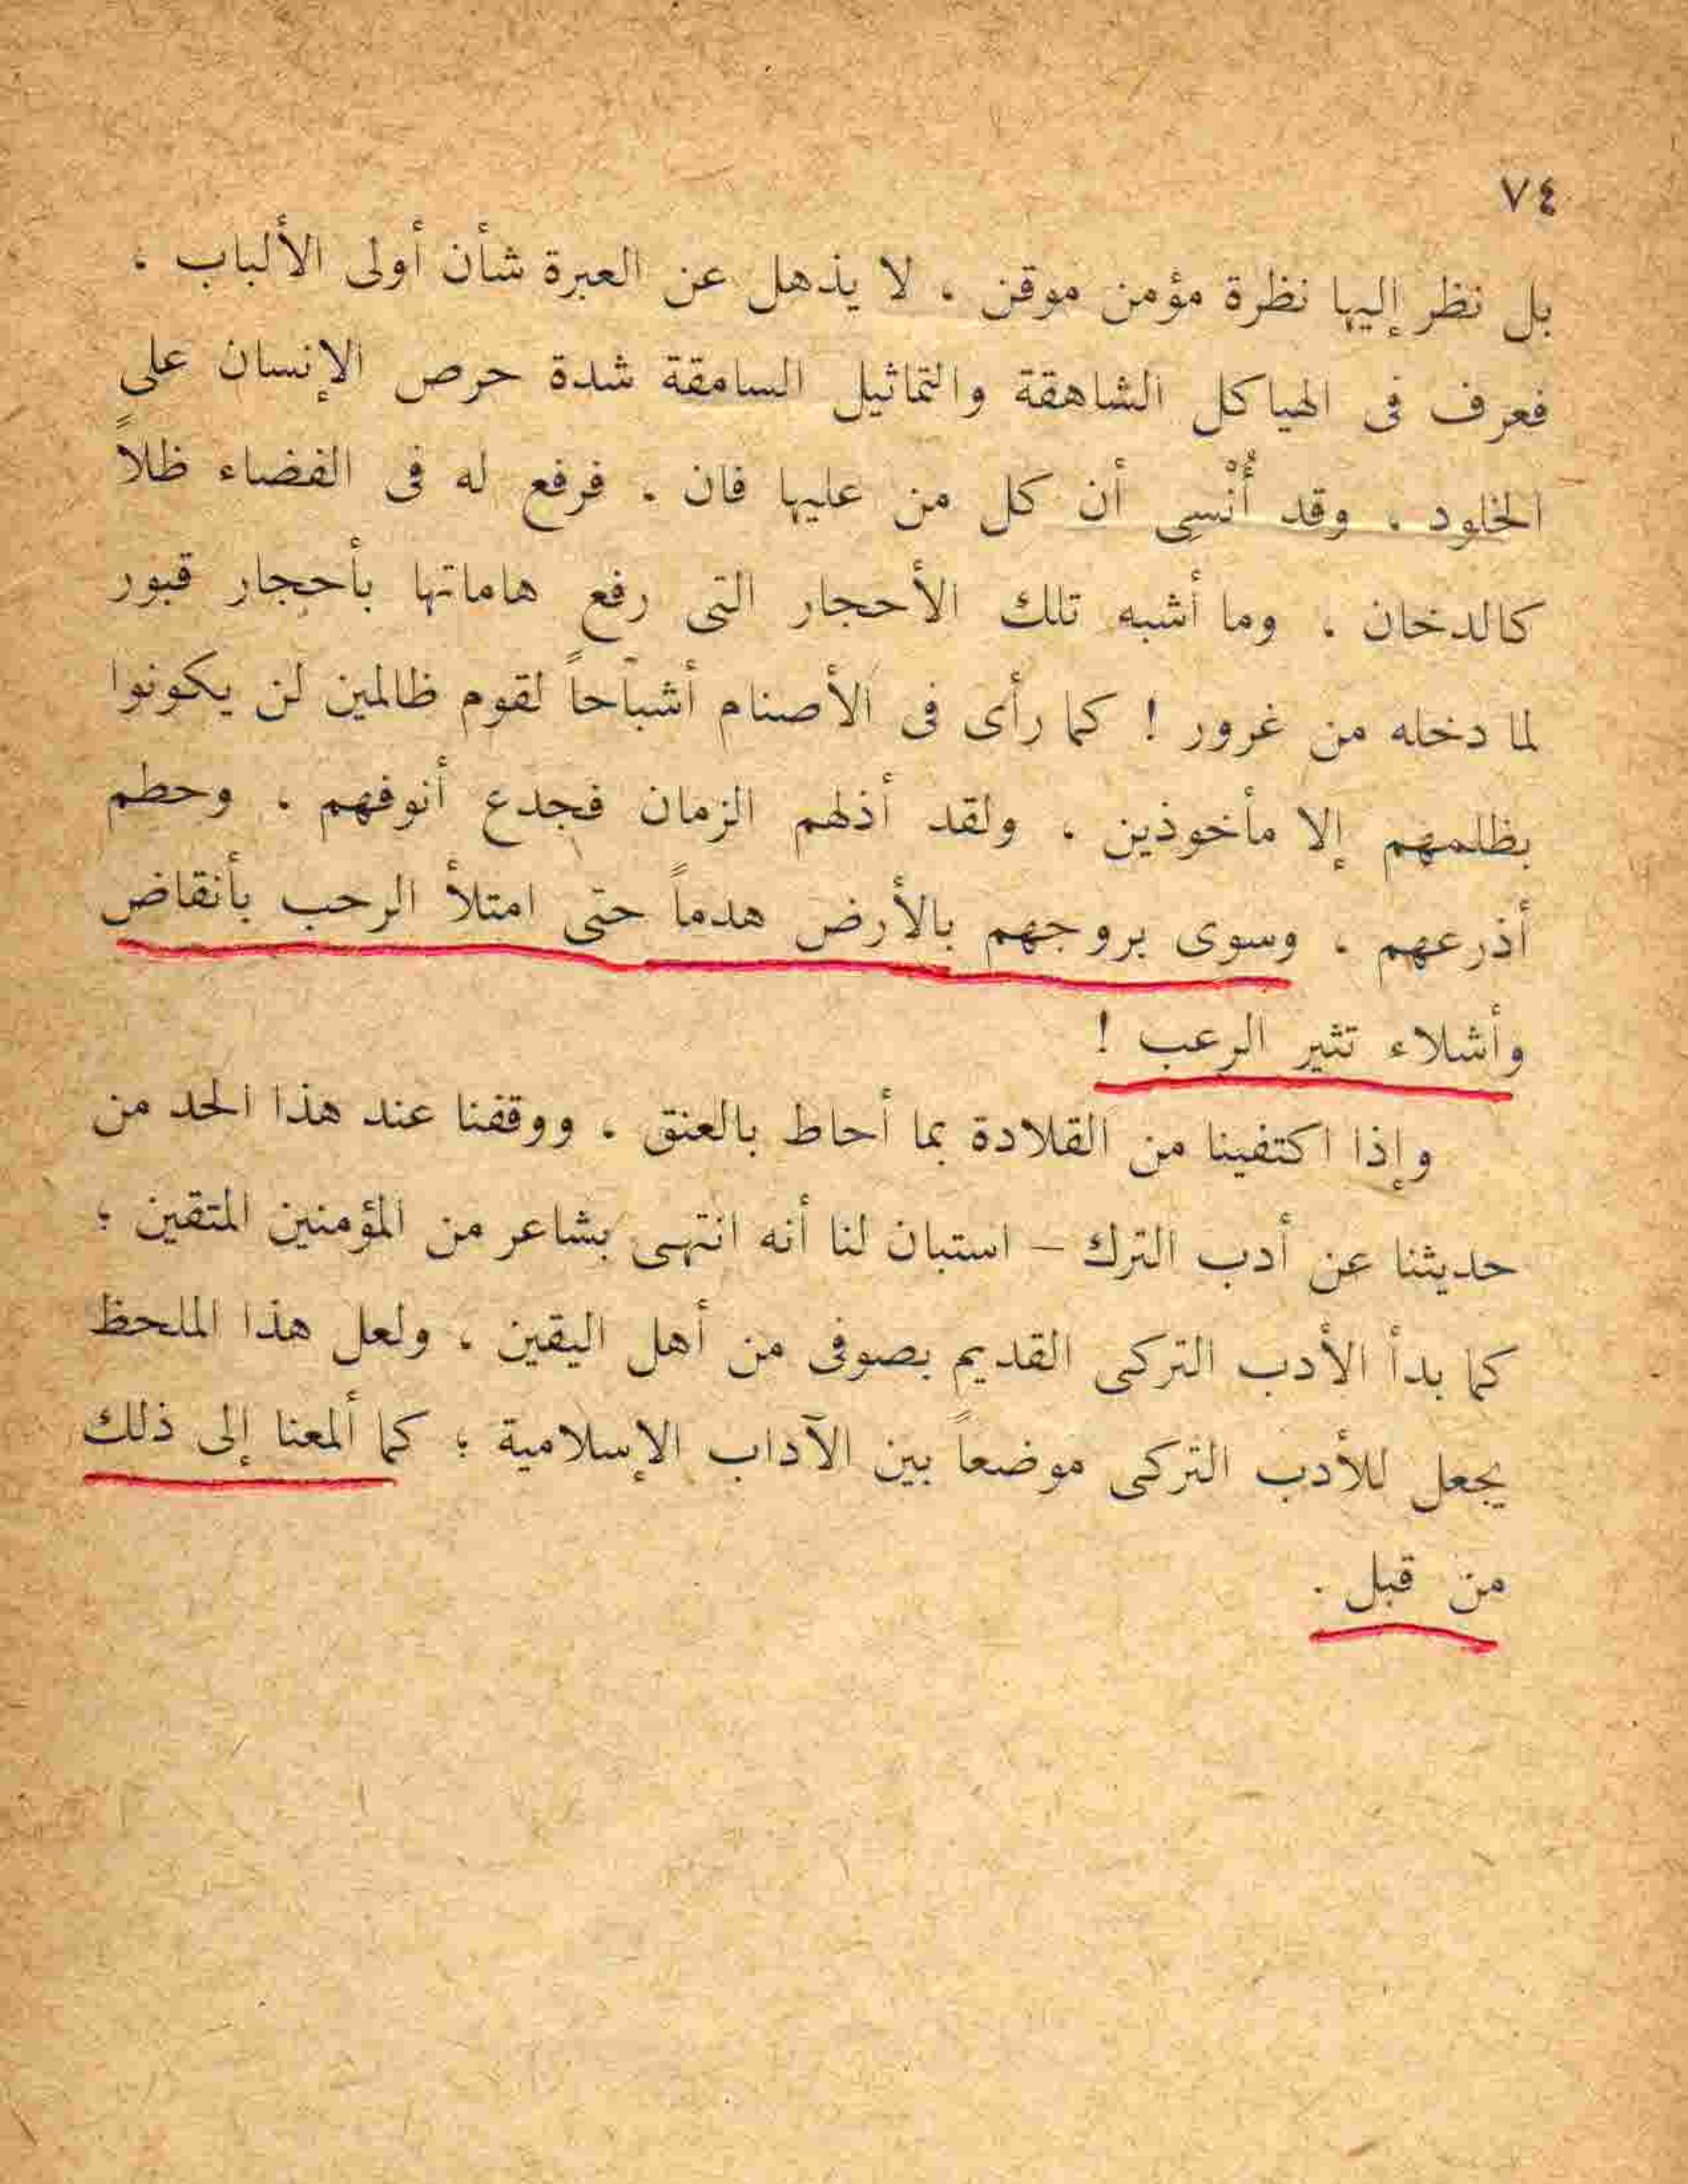 ٧٤
بل نظر إليها نظرة مؤمن موقن ، لا يذهل عن العبرة شأن أولى الألباب ،
فعرف فى الهياكل الشاهقة والتماثيل السامقة شدة حرص الإنسان على
الخلود ، وقد أُنْسِى أن كل من عليها فان . فرفع له فى الفضاء ظلاًّ
كالدخان . وما أشبه تلك الأحجار التى رفع هاماتها بأحجار قبور
لما دخله من غرور ! كما رأى فى الأصنام أشباحاً لقوم ظالمين لن يكونوا
بظلمهم إلا مأخوذين ، ولقد أذلهم الزمان فجدع أنوفهم ، وحطم
أذرعهم ، وسوى بروجهم بالأرض هدماً حتى امتلأ الرحب بأنقاض
وأشلاء تثير الرعب !
وإذا اكتفينا من القلادة بما أحاط بالعنق ، ووقفنا عند هذا الحد من
حديثنا عن أدب الترك – استبان لنا أنه انتهى بشاعر من المؤمنين المتقين ؛
كما بدأ الأدب التركى القديم بصوفى من أهل اليقين ، ولعل هذا الملحظ
يجعل للأدب التركى موضعاً بين الآداب الإسلامية ؛ كما ألمعنا إلى ذلك
من قبل .